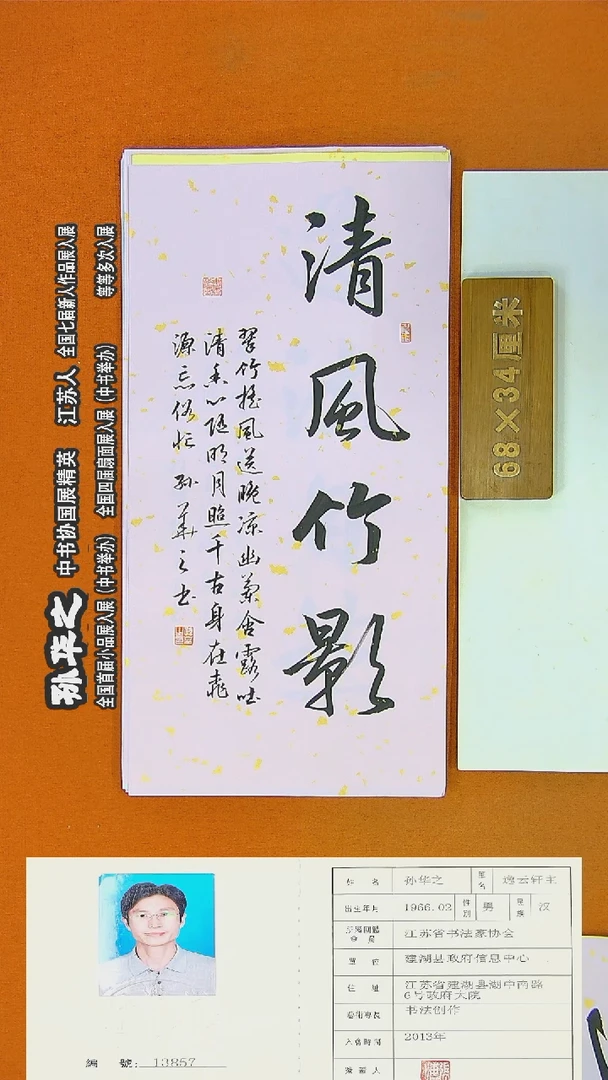 清風竹影
翠竹摇風送晚凉幽蘭含露吐
清香心随明月照千古身在桃
源忘俗忙 孙華之书
68×34厘米
孙华之 中书协国展精英 江苏人 全国七届新人作品展入展
全国首届小品展入展(中书举办) 全国四届扇面展入展(中书举办) 等等多次入展
姓 名 孙华之 逸云轩主
出生年月 1966.02 性别 男 民族 汉
江苏省书法家协会
會 員
單 位 建湖县政府信息中心
住 址 江苏省建湖县湖中南路
6号政府大院
藝術專長 书法创作
入會時間 2013年
編 號: 13857